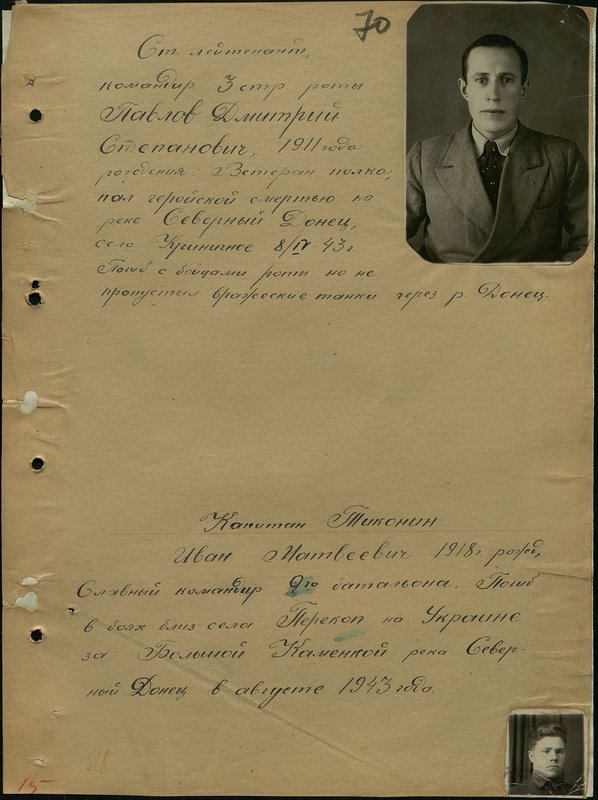 70
Ст. лейтенант,
командир 3 стр роты
Павлов Дмитрий
Степанович, 1911 года
рождения. Ветеран полка,
пал геройской смертью на
реке Северный Донец,
село Криничное 8/IV 43 г.
Погиб с бойцами роты но не
пропустил вражеские танки через р. Донец.
Капитан Тиконин
Иван Матвеевич 1918 г. рожд.
Славный командир 2го батальона. Погиб
в боях близ села Перекоп на Украине
за Большой Каменкой река Север-
ный Донец в августе 1943 года.
15